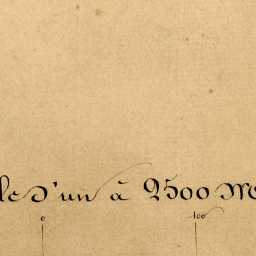 le d'un à 2500 Me
0 100